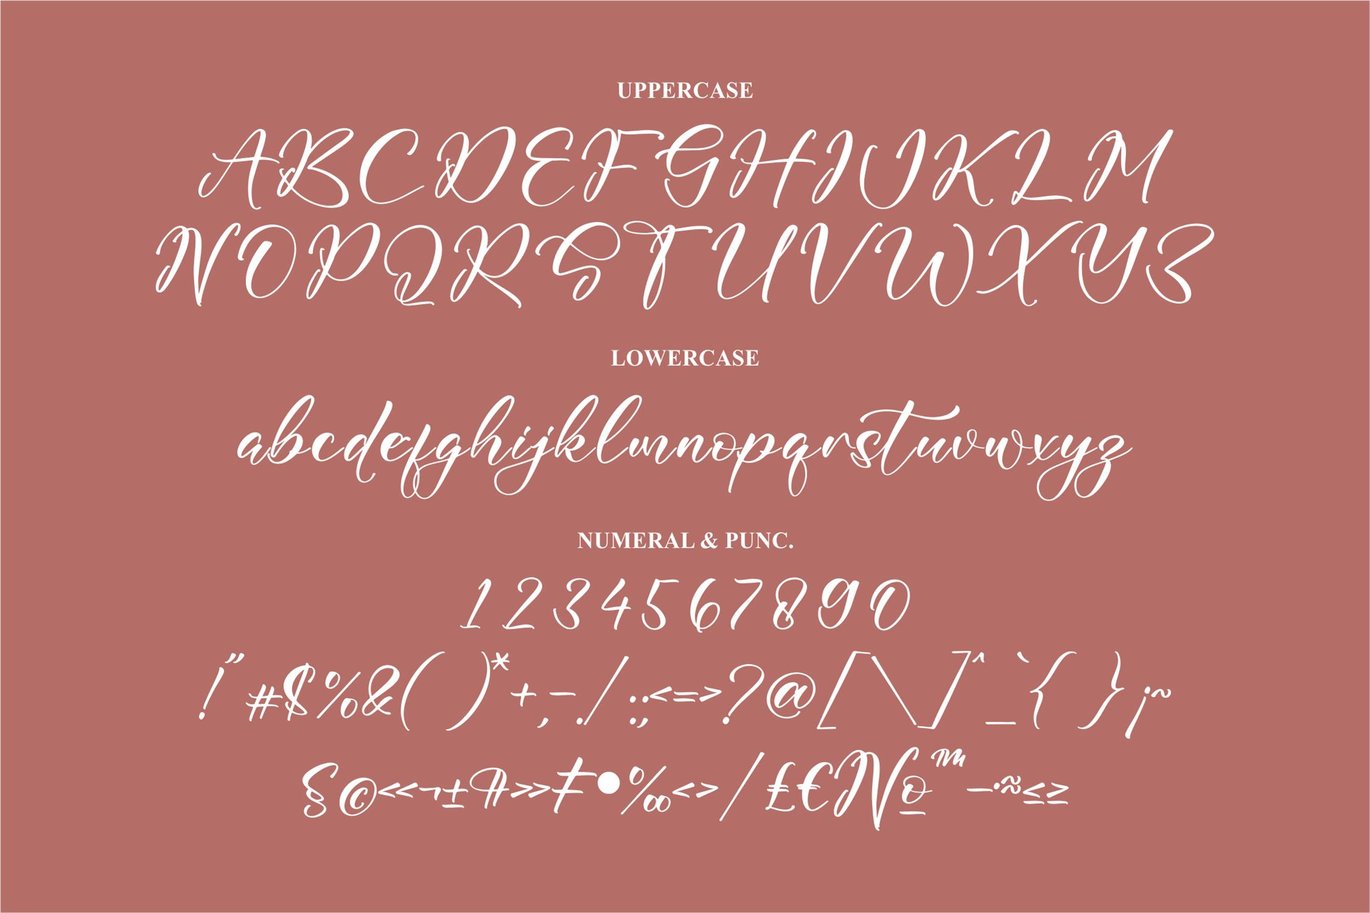 UPPERCASE
ABCDEFGHIJKLM
NOPQRSTUVWXYZ
LOWERCASE
abcdefghijklmnopqrstuvwxyz
NUMERAL & PUNC.
1234567890
!"#$%&()*+,-./:;<=>?@[\]^_`{}¡~
§©«¬±¶»‡•‰<>/£€№™−∙≈≤≥